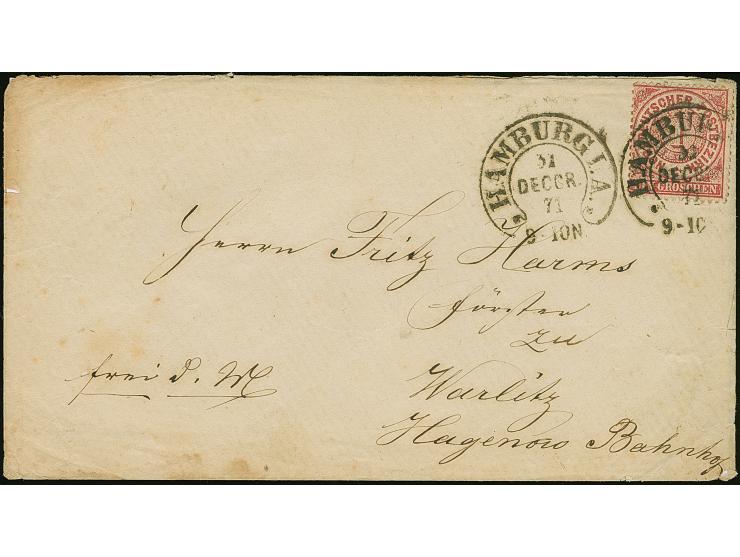 HAMBURG I.A.
31
DECBR.
71
9-10N.
HAMBU
31
DECB
71
9-10
GROSCHEN
Herrn Fritz Harms
Förster
zu
Warlitz
Hagenow Bahnhof
frei d. M